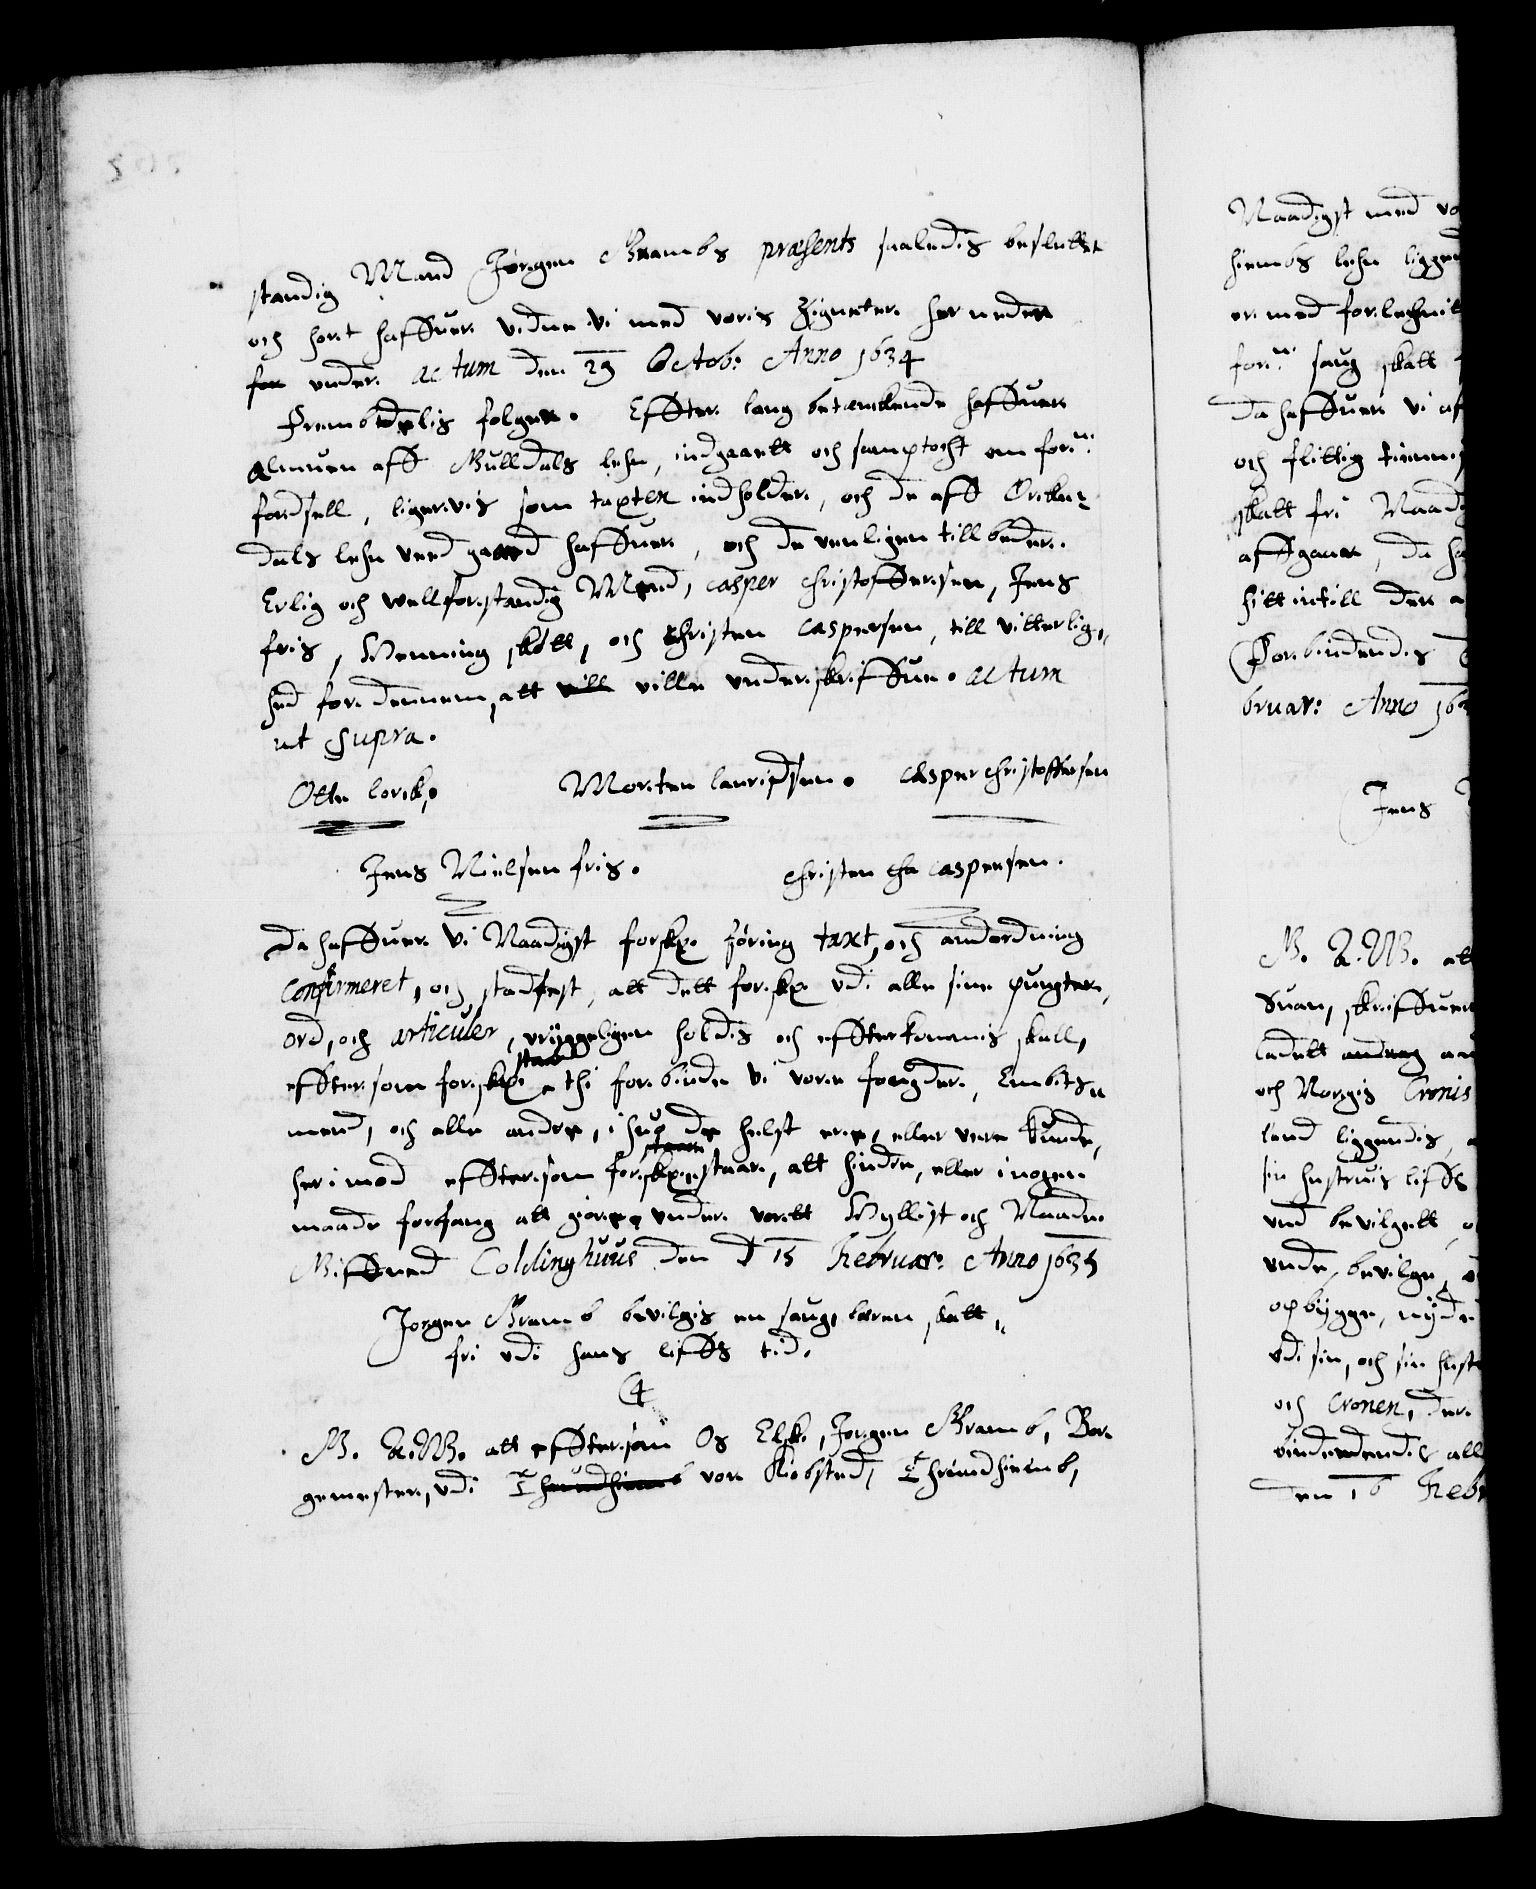 standig Mand Jørgen Brambs præsents saaledis besluttet
och hørt haffuer vidne vi med voris Zigneter her neden
for under. actum den 29 Octob: Anno 1634
Frembdelis følger. Effter lang betænkende haffuer
Almuen aff Gulldals lehn, indgaaett och samptøcht om for:ne
fordsell, ligervis som taxten indholder, och de aff Orcke¬
dals lehn ved gaaed haffuer, och de venligen tillbeder.
Erlig och wellforstandig Mend, Casper Christoffersen, Jens
friis, Henning skøtt, och Christen Caspersen, till vitterlig¬
hed for dennem, att vill ville underskriffue. actum
ut supra.
Otte lorck, Morten lauridsen. Casper Christoffersen
Jens Nielsen friis. Christen Cha Caspersen.
Da haffuer vi Naadigst forskp: føring taxt, och anordning
Confirmeret, och stadfest, att dett forskp: udi alle sine pungter,
ord, och articuler, uryggeligen holdis och effterkommis skall,
staar
effter som forskp: thi forbinde vi vore fougder, Embits¬
mend, och alle andre, i huo de helst ere, eller vere kunde,
staar
her imod effter som forskp: staar, att hindre, eller i nogen
maade forfang att giøre under vortt Hyllist och Naade
Giffued Coldinghuus den d 15 Februar: Anno 1635
Jørgen Bramb bevilgis en saug, være skatt¬
fri udi hans liffs tid.
4
G. A. W. att effter som Os Elsk: Jørgen Bramb, Bor¬
gemester, udi Thrundhiemb vor Kiøbsted, Thrundhiemb,
Naadigst med vo
hiembs lehn liggen
er med forlehnit
for:ne saug skatt
da haffuer vi af
och flittig tienniß
skatt fri Naadi
affganer, da ha
hid intill der a
Forbindendis
bruar: Anno 163
Jens
G. A. W. att
Suan, skriffuer
ladett andrag an
och Norgis Cronis
land liggendis,
sin hustruis liffs
ved bevilgett, o
unde, bevilge, o
opbygge, nyde
udi sin, och sin hust
och Cronen, der
bindendis all
den 16 Febr